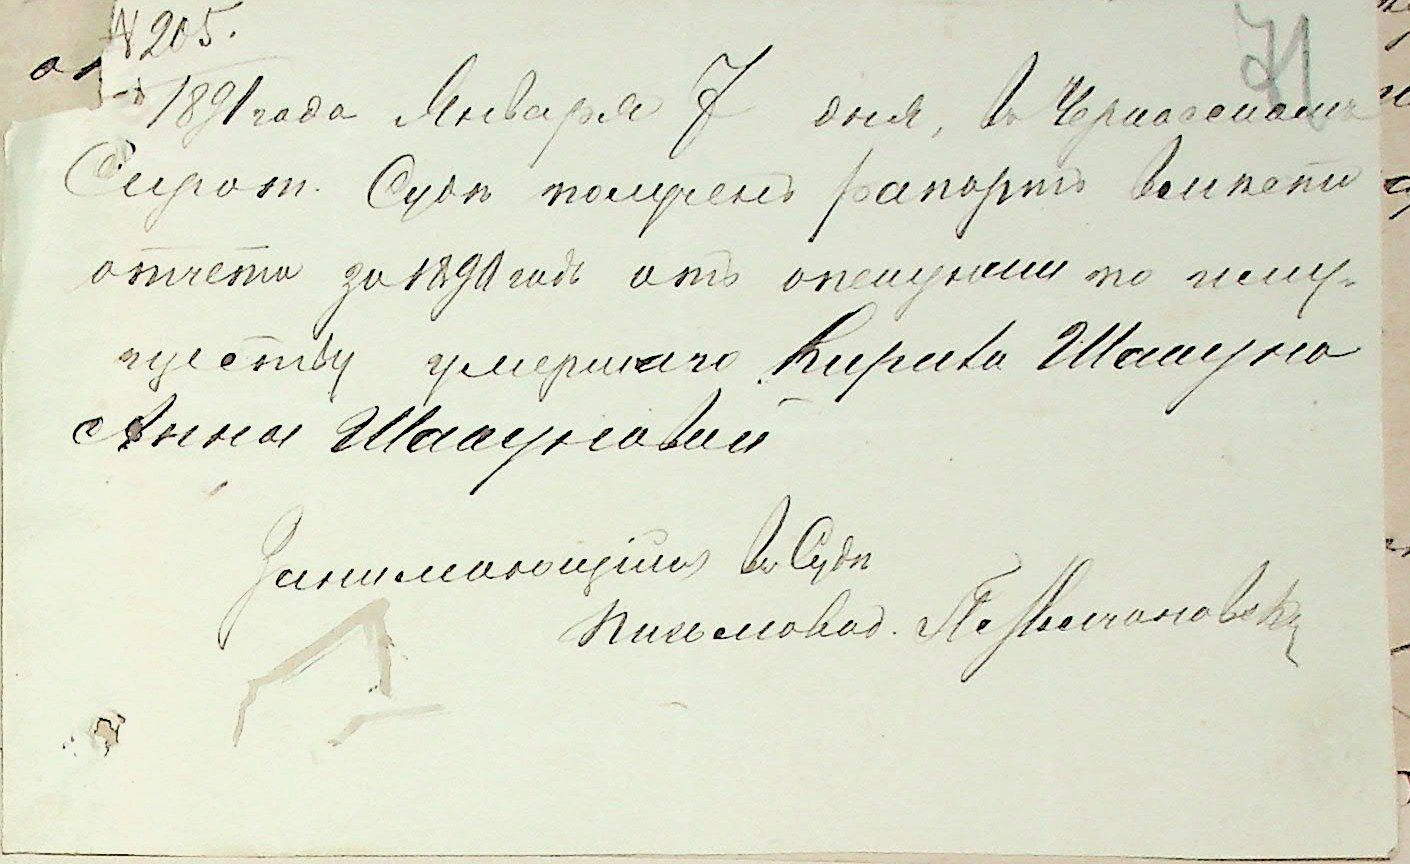 № 205.
71
1891 года Января 7 дня, въ Черкасскомъ
Сирот. Судѣ полученъ рапортъ вмѣсто
отчета за 1890 годъ отъ опекунши по иму-
ществу умершаго Кирика Шакуна
Анны Шакуновой
Занимающійся въ Судѣ
письмовод. П.